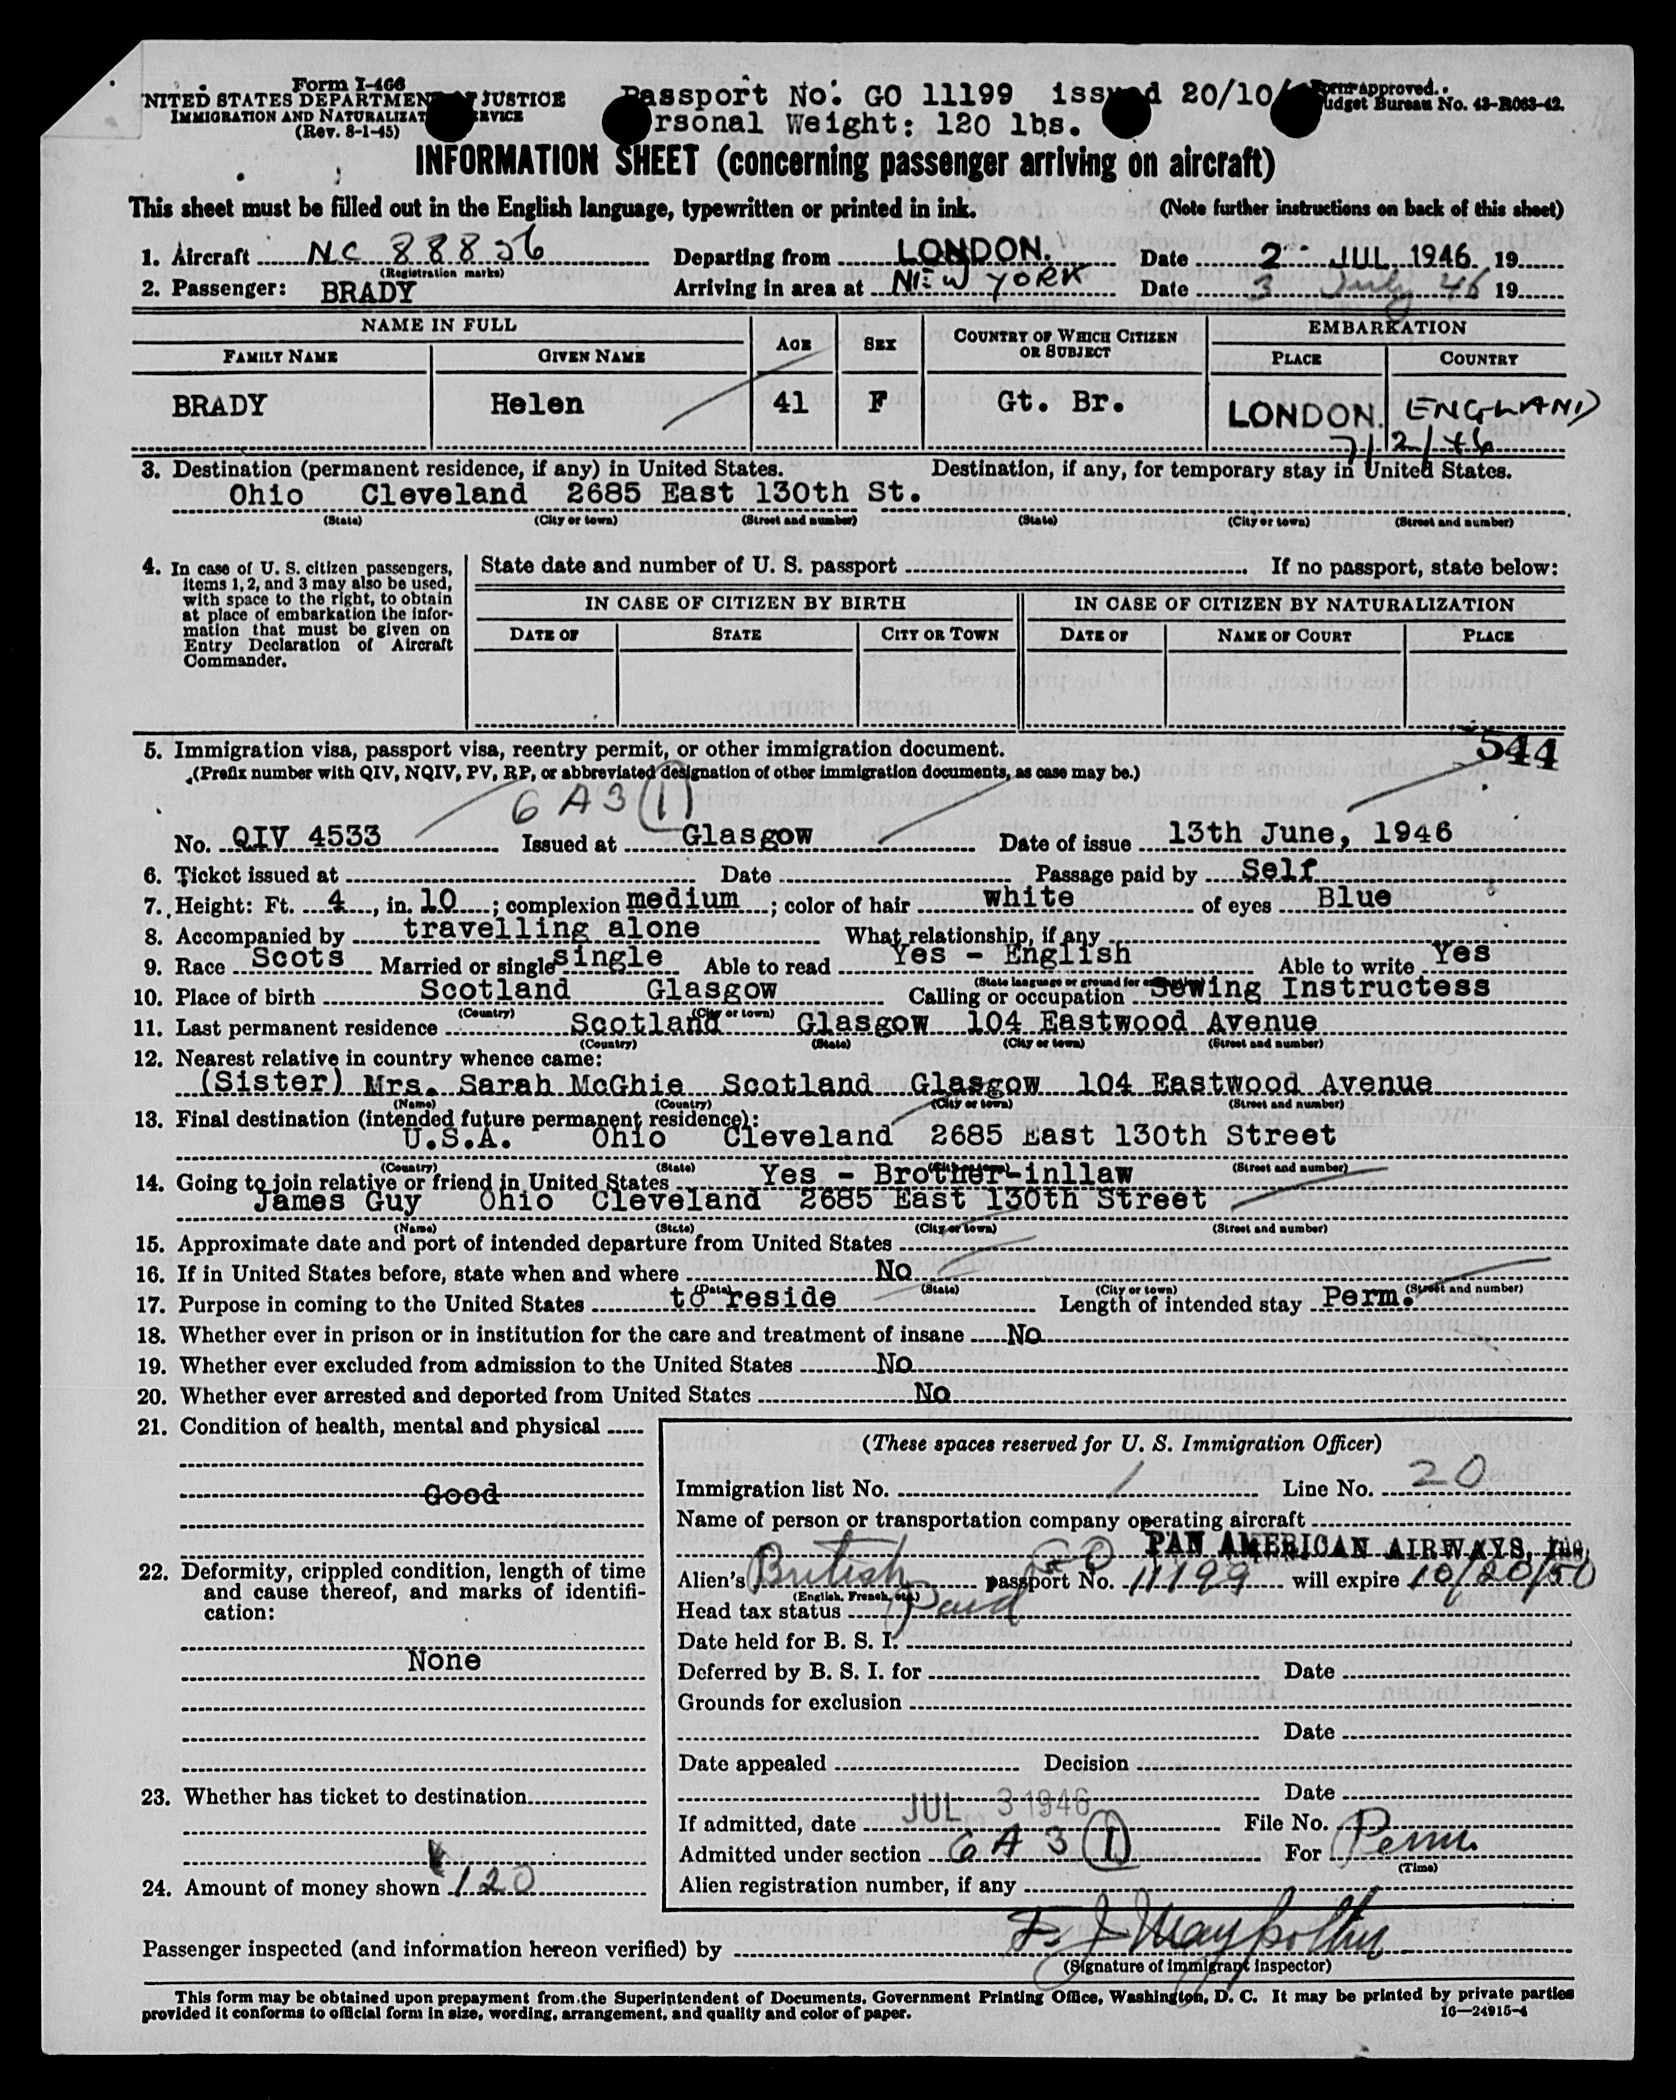 Form I-466
UNITED STATES DEPARTMENT OF JUSTICE
IMMIGRATION AND NATURALIZATION SERVICE
(Rev. 8-1-45)
Passport No: GO 11199 issued 20/10/
Personal Weight: 120 lbs.
Form approved.
Budget Bureau No. 43-R063-42.
INFORMATION SHEET (concerning passenger arriving on aircraft)
This sheet must be filled out in the English language, typewritten or printed in ink. (Note further instructions on back of this sheet)
1. Aircraft NC 88856 Departing from LONDON. Date 2 - JUL 1946 19
(Registration marks)
2. Passenger: BRADY Arriving in area at NEW YORK Date 3 July 46 19
NAME IN FULL AGE SEX COUNTRY OF WHICH CITIZEN OR SUBJECT EMBARKATION
FAMILY NAME GIVEN NAME PLACE COUNTRY
BRADY Helen 41 F Gt. Br. LONDON. ENGLAND
7/2/46
3. Destination (permanent residence, if any) in United States. Destination, if any, for temporary stay in United States.
Ohio Cleveland 2685 East 130th St.
(State) (City or town) (Street and number) (State) (City or town) (Street and number)
4. In case of U. S. citizen passengers, items 1, 2, and 3 may also be used, with space to the right, to obtain at place of embarkation the information that must be given on Entry Declaration of Aircraft Commander.
State date and number of U. S. passport If no passport, state below:
IN CASE OF CITIZEN BY BIRTH IN CASE OF CITIZEN BY NATURALIZATION
DATE OF STATE CITY OR TOWN DATE OF NAME OF COURT PLACE
544
5. Immigration visa, passport visa, reentry permit, or other immigration document.
(Prefix number with QIV, NQIV, PV, RP, or abbreviated designation of other immigration documents, as case may be.)
6 A 3 (1)
No. QIV 4533 Issued at Glasgow Date of issue 13th June, 1946
6. Ticket issued at Date Passage paid by Self
7. Height: Ft. 4, in. 10; complexion medium; color of hair white of eyes Blue
8. Accompanied by travelling alone What relationship, if any
9. Race Scots Married or single single Able to read Yes - English Able to write Yes
(State language or ground for exemption)
10. Place of birth Scotland Glasgow Calling or occupation Sewing Instructess
(Country) (City or town)
11. Last permanent residence Scotland Glasgow 104 Eastwood Avenue
(Country) (State) (City or town) (Street and number)
12. Nearest relative in country whence came:
(Sister) Mrs. Sarah McGhie Scotland Glasgow 104 Eastwood Avenue
(Name) (Country) (City or town) (Street and number)
13. Final destination (intended future permanent residence):
U.S.A. Ohio Cleveland 2685 East 130th Street
(Country) (State) (City or town) (Street and number)
14. Going to join relative or friend in United States Yes - Brother-inllaw
James Guy Ohio Cleveland 2685 East 130th Street
(Name) (State) (City or town) (Street and number)
15. Approximate date and port of intended departure from United States
16. If in United States before, state when and where No
(Date) (State) (City or town) (Street and number)
17. Purpose in coming to the United States to reside Length of intended stay Perm.
18. Whether ever in prison or in institution for the care and treatment of insane No
19. Whether ever excluded from admission to the United States No
20. Whether ever arrested and deported from United States No
21. Condition of health, mental and physical
Good
22. Deformity, crippled condition, length of time and cause thereof, and marks of identification:
None
23. Whether has ticket to destination
24. Amount of money shown 120
(These spaces reserved for U. S. Immigration Officer)
Immigration list No. 1 Line No. 20
Name of person or transportation company operating aircraft
PAN AMERICAN AIRWAYS, Inc.
Alien's British passport No. GO 11199 will expire 10/20/50
(English, French, etc.)
Head tax status Paid
Date held for B. S. I.
Deferred by B. S. I. for Date
Grounds for exclusion
Date
Date appealed Decision
Date
If admitted, date JUL 3 1946 File No.
Admitted under section 6 A 3 (1) For Perm.
(Time)
Alien registration number, if any
Passenger inspected (and information hereon verified) by
(Signature of immigrant inspector)
This form may be obtained upon prepayment from the Superintendent of Documents, Government Printing Office, Washington, D. C. It may be printed by private parties
provided it conforms to official form in size, wording, arrangement, and quality and color of paper. 16—24915-4